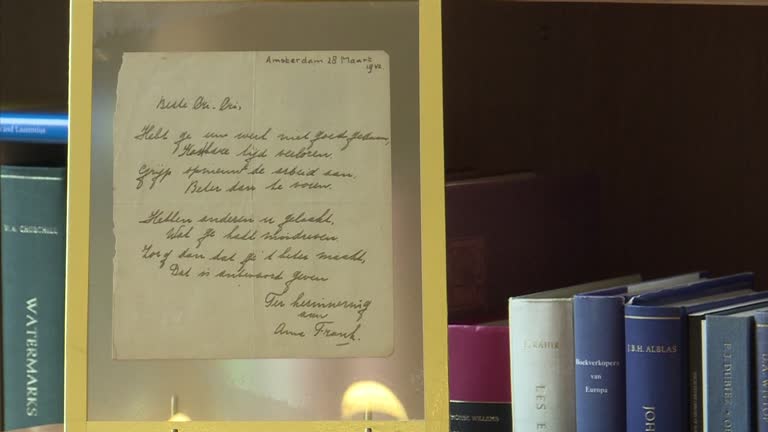 Amsterdam 28 Maart
1942
Beste Cri-Cri,
Hebt ge uw werk niet goed gedaan,
Kostbare tijd verloren,
Grijp opnieuw de arbeid aan.
Beter dan te voren.
Hebben anderen u gelaakt,
Wat ge hadt misdreven.
Zorg dan dat ge 't beter maakt,
Dat is antwoord geven
Ter herinnering
aan
Anne Frank.
W.A. CHURCHILL
WATERMARKS
E. RAHIR
LES E
Boekverkopers
van
Europa
J.B.H. ALBLAS
JOH